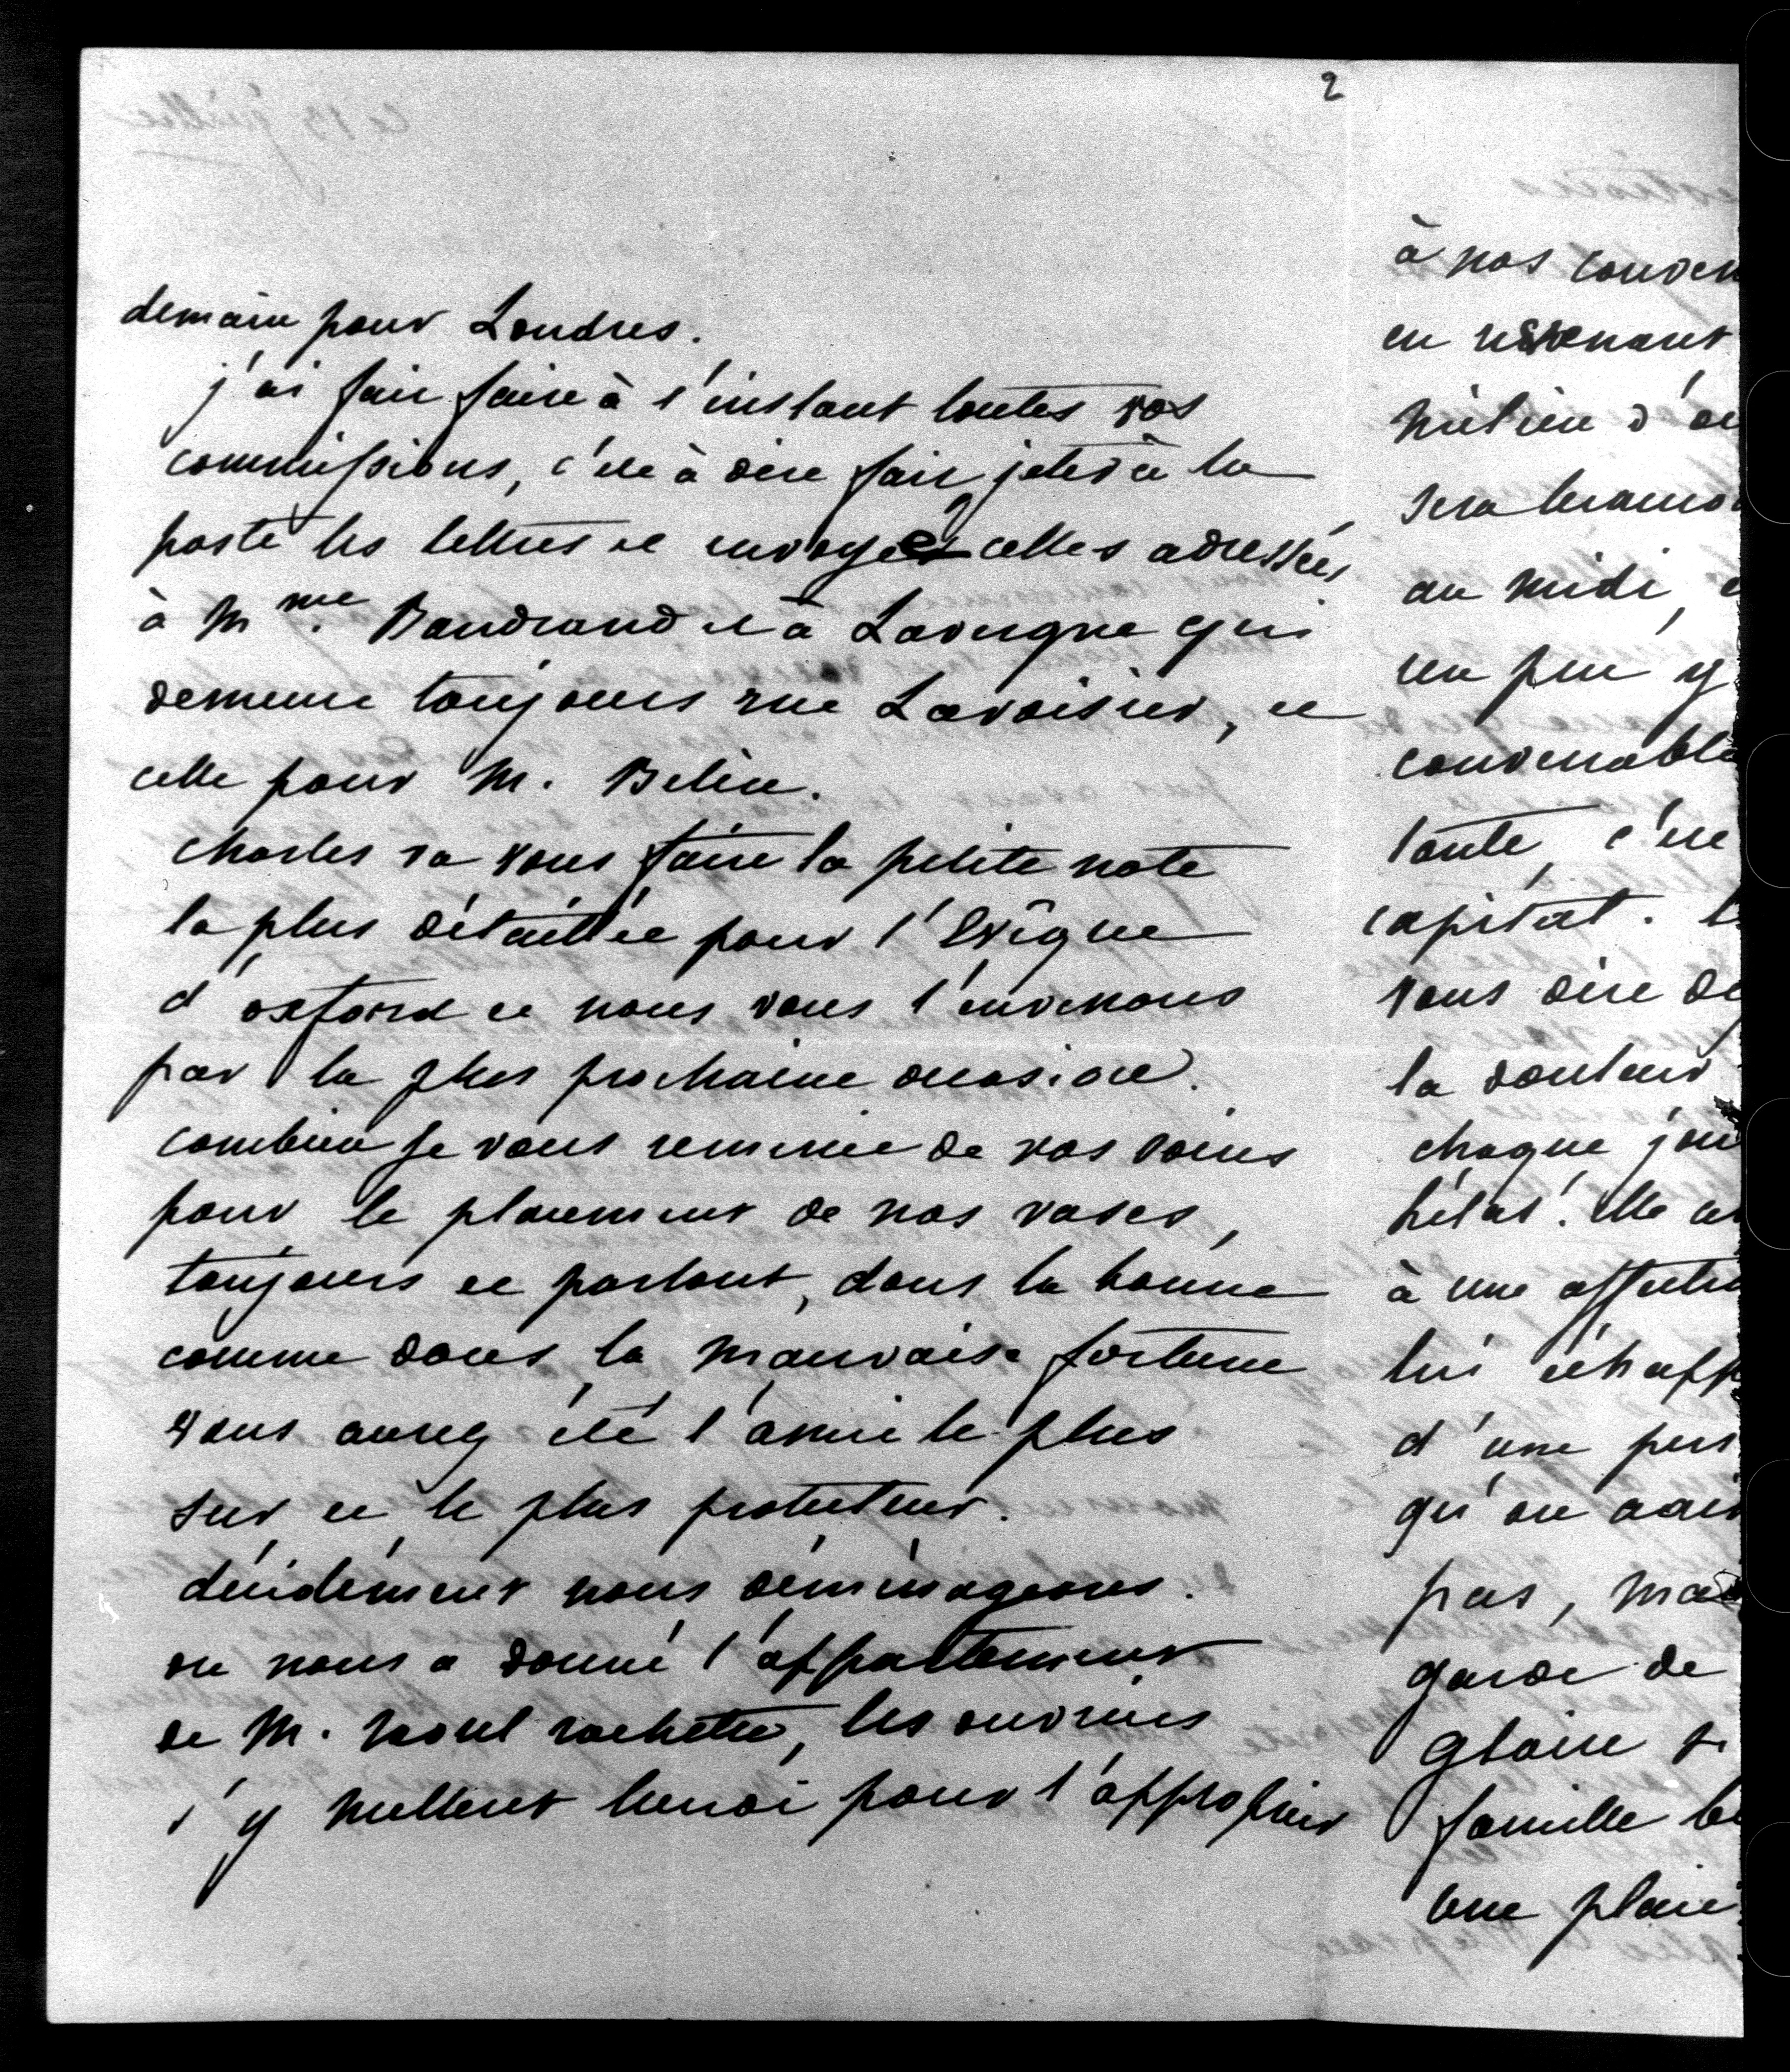 2
demain pour Londres.
j'ai fait faire à l'instant toutes vos
commissions, c'est à dire fait jeter à la
poste les lettres et envoyer celles adressées
à Mme. Baudrand et à Lavergne qui
demeure toujours rue Lavoisier, et
celle pour M. Belin.
Charles va vous faire la petite note
la plus détaillée pour l'Evêque
d'oxford et nous vous l'enverrons
par la plus prochaine occasion.
combien je vous remercie de vos soins
pour le placement de nos vases,
toujours et partout, dans la bonne
comme dans la mauvaise fortune
vous aurez été l'ami le plus
sur et le plus protecteur.
décidément nous déménageons.
on nous a donné l'appartement
de M. raoul rochette, les ouvriers
s'y mettent lundi pour l'approprier
à nos conven
en revenant
milieu d'
sera
au midi,
un peu
convenable
toute, c'est
capital.
vous dire
la douleur
chaque jou
hélas! Elle
à une affectio
lui échapp
d'une
qu'on
pas, ma
garde de
gloire
famille
une plai